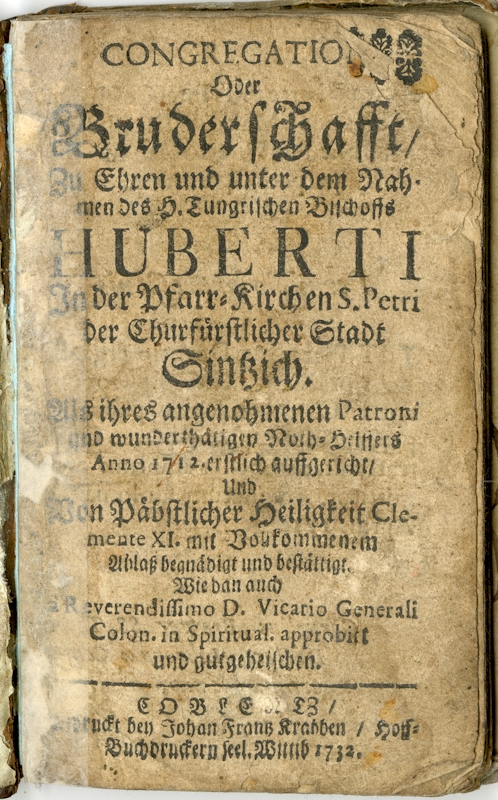 CONGREGATION
Oder
Bruderschafft/
Zu Ehren und unter dem Nah-
men des H. Tungrischen Bischoffs
HUBERTI
In der Pfarr-Kirchen S. Petri
der Churfürstlicher Stadt
Sintzich.
Als ihres angenohmenen Patroni
und wunderthätigen Noth-Helffers
Anno 1712. erstlich auffgericht/
Und
Von Päbstlicher Heiligkeit Cle-
mente XI. mit Vollkommenem
Ablaß begnädigt und bestättigt.
Wie dan auch
à Reverendissimo D. Vicario Generali
Colon. in Spiritual. approbirt
und gutgeheischen.
COBLENTZ/
Gedruckt bey Johan Frantz Krabben / Hoff-
Buchdruckern seel. Wittib 1732.